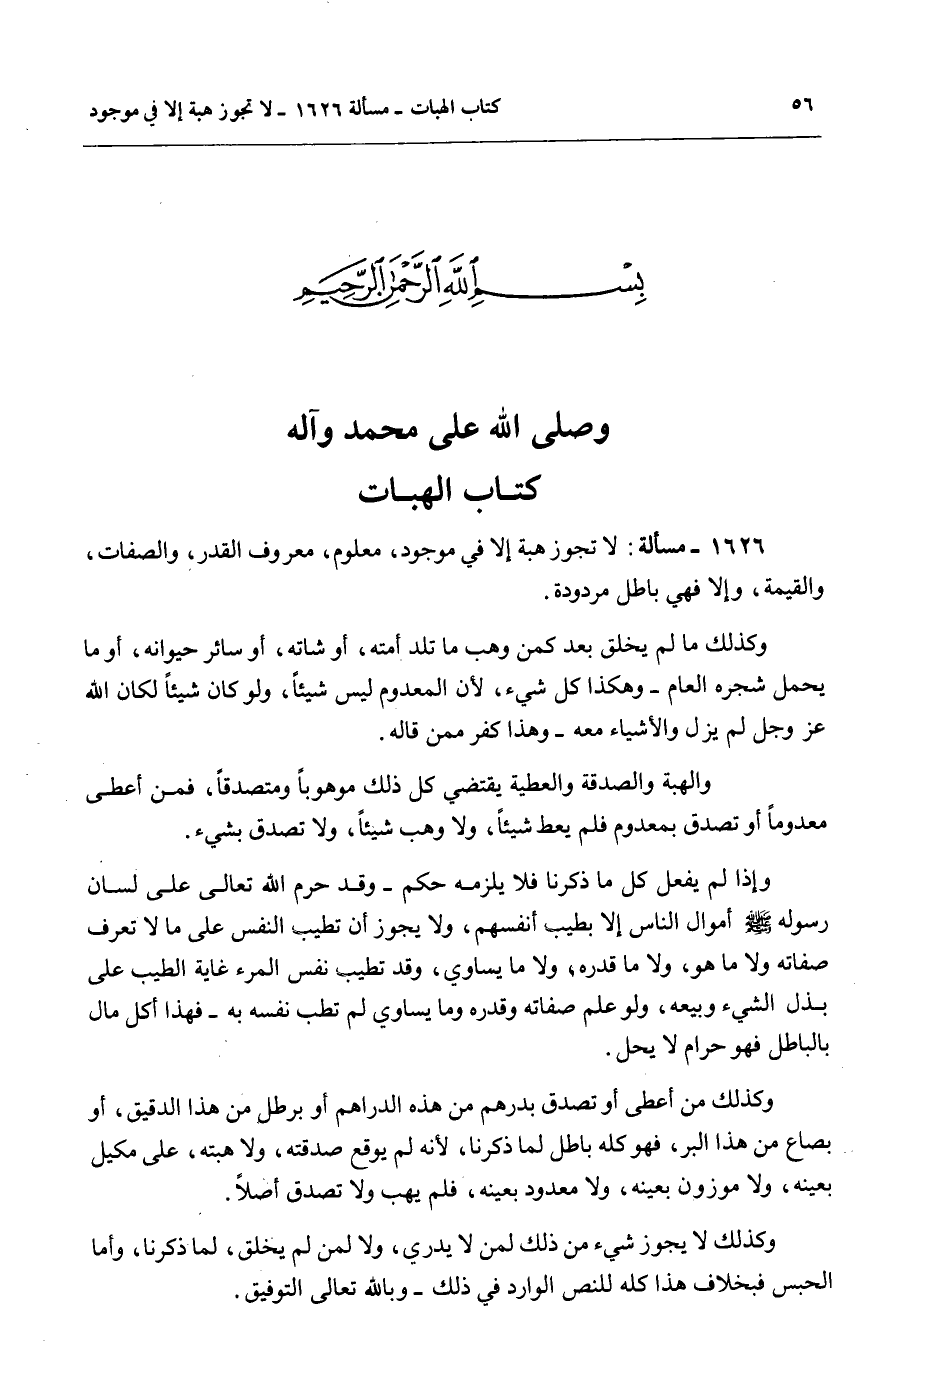 ٥٦
كتاب الهبات ـ مسألة ١٦٢٦ ـ لا تجوز هبة إلا في موجود
بِسْمِ اللَّهِ الرَّحْمَٰنِ الرَّحِيمِ
وصلى الله على محمد وآله
كتـاب الهبـات
١٦٢٦ ـ مسألة: لا تجوز هبة إلا في موجود، معلوم، معروف القدر، والصفات،
والقيمة، وإلا فهي باطل مردودة.
وكذلك ما لم يخلق بعد كمن وهب ما تلد أمته، أو شاته، أو سائر حيوانه، أو ما
يحمل شجره العام ـ وهكذا كل شيء، لأن المعدوم ليس شيئاً، ولو كان شيئاً لكان الله
عز وجل لم يزل والأشياء معه ـ وهذا كفر ممن قاله.
والهبة والصدقة والعطية يقتضي كل ذلك موهوباً ومتصدقاً، فمـن أعطـى
معدوماً أو تصدق بمعدوم فلم يعط شيئاً، ولا وهب شيئاً، ولا تصدق بشيء.
وإذا لم يفعل كل ما ذكرنا فلا يلزمـه حكم ـ وقـد حرم الله تعالـى علـى لسـان
رسوله ﷺ أموال الناس إلا بطيب أنفسهم، ولا يجوز أن تطيب النفس على ما لا تعرف
صفاته ولا ما هو، ولا ما قدره، ولا ما يساوي، وقد تطيب نفس المرء غاية الطيب على
بـذل الشيء وبيعه، ولو علم صفاته وقدره وما يساوي لم تطب نفسه به ـ فهذا أكل مال
بالباطل فهو حرام لا يحل.
وكذلك من أعطى أو تصدق بدرهم من هذه الدراهم أو برطل من هذا الدقيق، أو
بصاع من هذا البر، فهو كله باطل لما ذكرنا، لأنه لم يوقع صدقته، ولا هبته، على مكيل
بعينه، ولا موزون بعينه، ولا معدود بعينه، فلم يهب ولا تصدق أصلاً.
وكذلك لا يجوز شيء من ذلك لمن لا يدري، ولا لمن لم يخلق، لما ذكرنا، وأما
الحبس فبخلاف هذا كله للنص الوارد في ذلك ـ وبالله تعالى التوفيق.